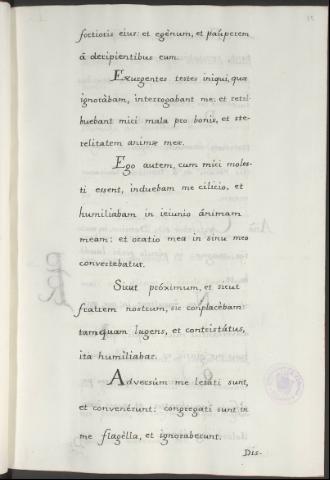 fortioris eius: et egénum, et páuperem
á deripientibus eum.
Exurgentes testes iniqui, quæ
ignorábam, interrogabant me. et retri-
huebant mici mala pro bonis, et ste-
relitatem animæ meæ.
Ego autem, cum mici moles-
ti essent, induebam me cilicio, et
humiliabam in ieiunio ánimam
meam: et oratio mea in sinu meo
convertebatur.
Sicut próximum, et sicut
fratrem nostrum, sic conplacèbam:
tamquam lugens, et contristátus,
ita humiliabar.
Adversùm me letati sunt,
et convenérunt: congregati sunt in
me flagélla, et ignoraberunt.
Dis-